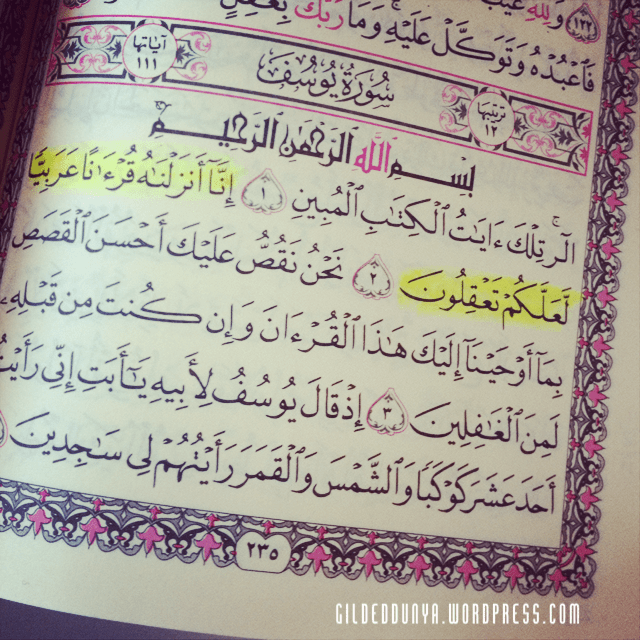 ١٢٢ وَلِلَّهِ غَيْبُ
فَٱعْبُدْهُ وَتَوَكَّلْ عَلَيْهِ وَمَا رَبُّكَ بِغَٰفِلٍ
ترتيبها ١٢ سُورَةُ يُوسُفَ آياتها ١١١
بِسْمِ ٱللَّهِ ٱلرَّحْمَٰنِ ٱلرَّحِيمِ
الٓرۚ تِلْكَ ءَايَٰتُ ٱلْكِتَٰبِ ٱلْمُبِينِ ١ إِنَّآ أَنزَلْنَٰهُ قُرْءَٰنًا عَرَبِيًّا
لَّعَلَّكُمْ تَعْقِلُونَ ٢ نَحْنُ نَقُصُّ عَلَيْكَ أَحْسَنَ ٱلْقَصَصِ
بِمَآ أَوْحَيْنَآ إِلَيْكَ هَٰذَا ٱلْقُرْءَانَ وَإِن كُنتَ مِن قَبْلِهِۦ
لَمِنَ ٱلْغَٰفِلِينَ ٣ إِذْ قَالَ يُوسُفُ لِأَبِيهِ يَٰٓأَبَتِ إِنِّى رَأَيْتُ
أَحَدَ عَشَرَ كَوْكَبًا وَٱلشَّمْسَ وَٱلْقَمَرَ رَأَيْتُهُمْ لِى سَٰجِدِينَ
٢٣٥
GILDEDDUNYA.WORDPRESS.COM